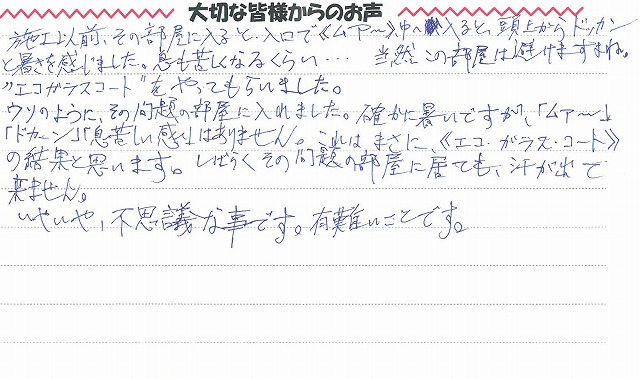 大切な皆様からのお声
施工以前、その部屋に入ると、入口で《ムアー》中へ入ると、頭上からドッカン
と暑さを感じました。息も苦しくなるくらい… 当然この部屋は避けますよね。
"エコガラスコート"をやってもらいました。
ウソのように、その問題の部屋に入れました。確かに暑いですが、「ムアー」
「ドカーン」「息苦しい感」はありません。これはまさに、《エコ・ガラス・コート》
の結果と思います。しばらくその問題の部屋に居ても、汗が出て
来ません。
いやいや、不思議な事です。有難いことです。